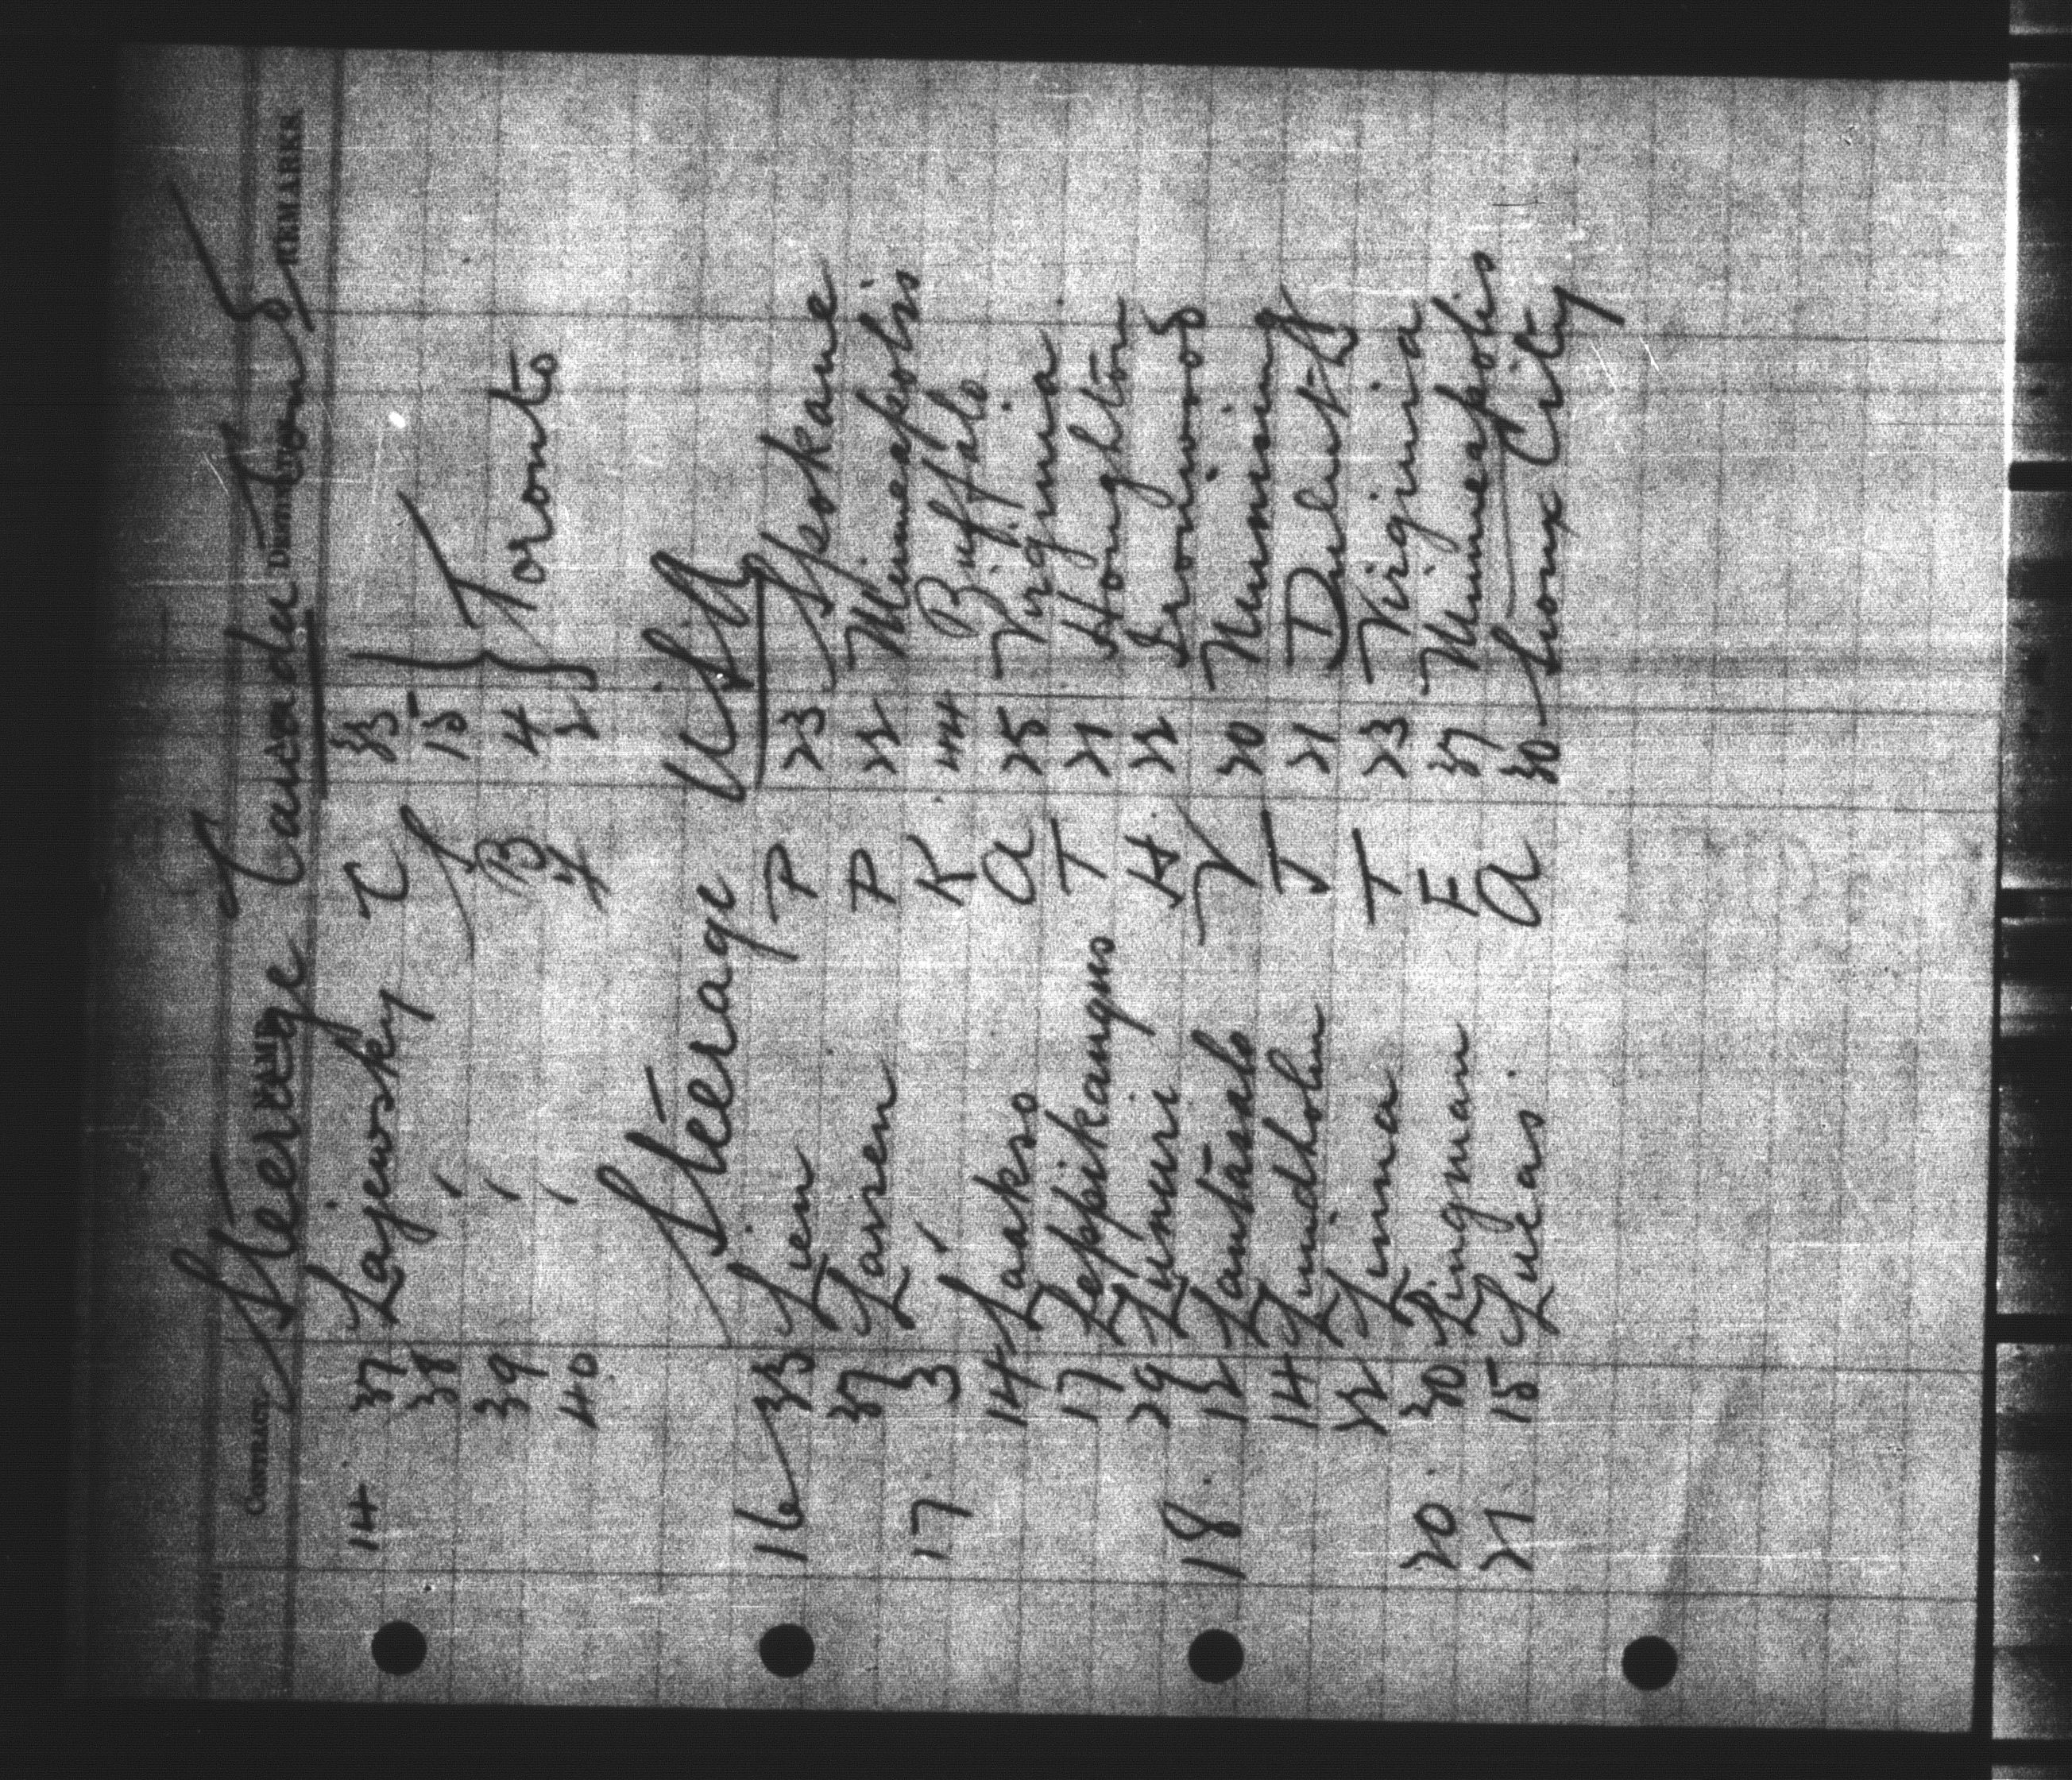 CONTRACT NAME DESTINATION REMARKS
Steerage Canada
14 37 Lajewsky C 33
38 " S 15 } Toronto
39 " B 4
40 " 2
Steerage USA
16 33 Lien P 23 Spokane
37 Larsen P 22 Minneapolis
17 3 " K 44 Buffalo
14 Laakso A 25 Virginia
17 Leppikangus T 21 Houghton
29 Lumeri H 22 Ironwood
18 12 Lantasalo V 20 Munising
14 Lundholm J 21 Duluth
22 Linna T 23 Virginia
20 30 Lingman F 37 Minneapolis
21 15 Lucas A 30 Sioux City